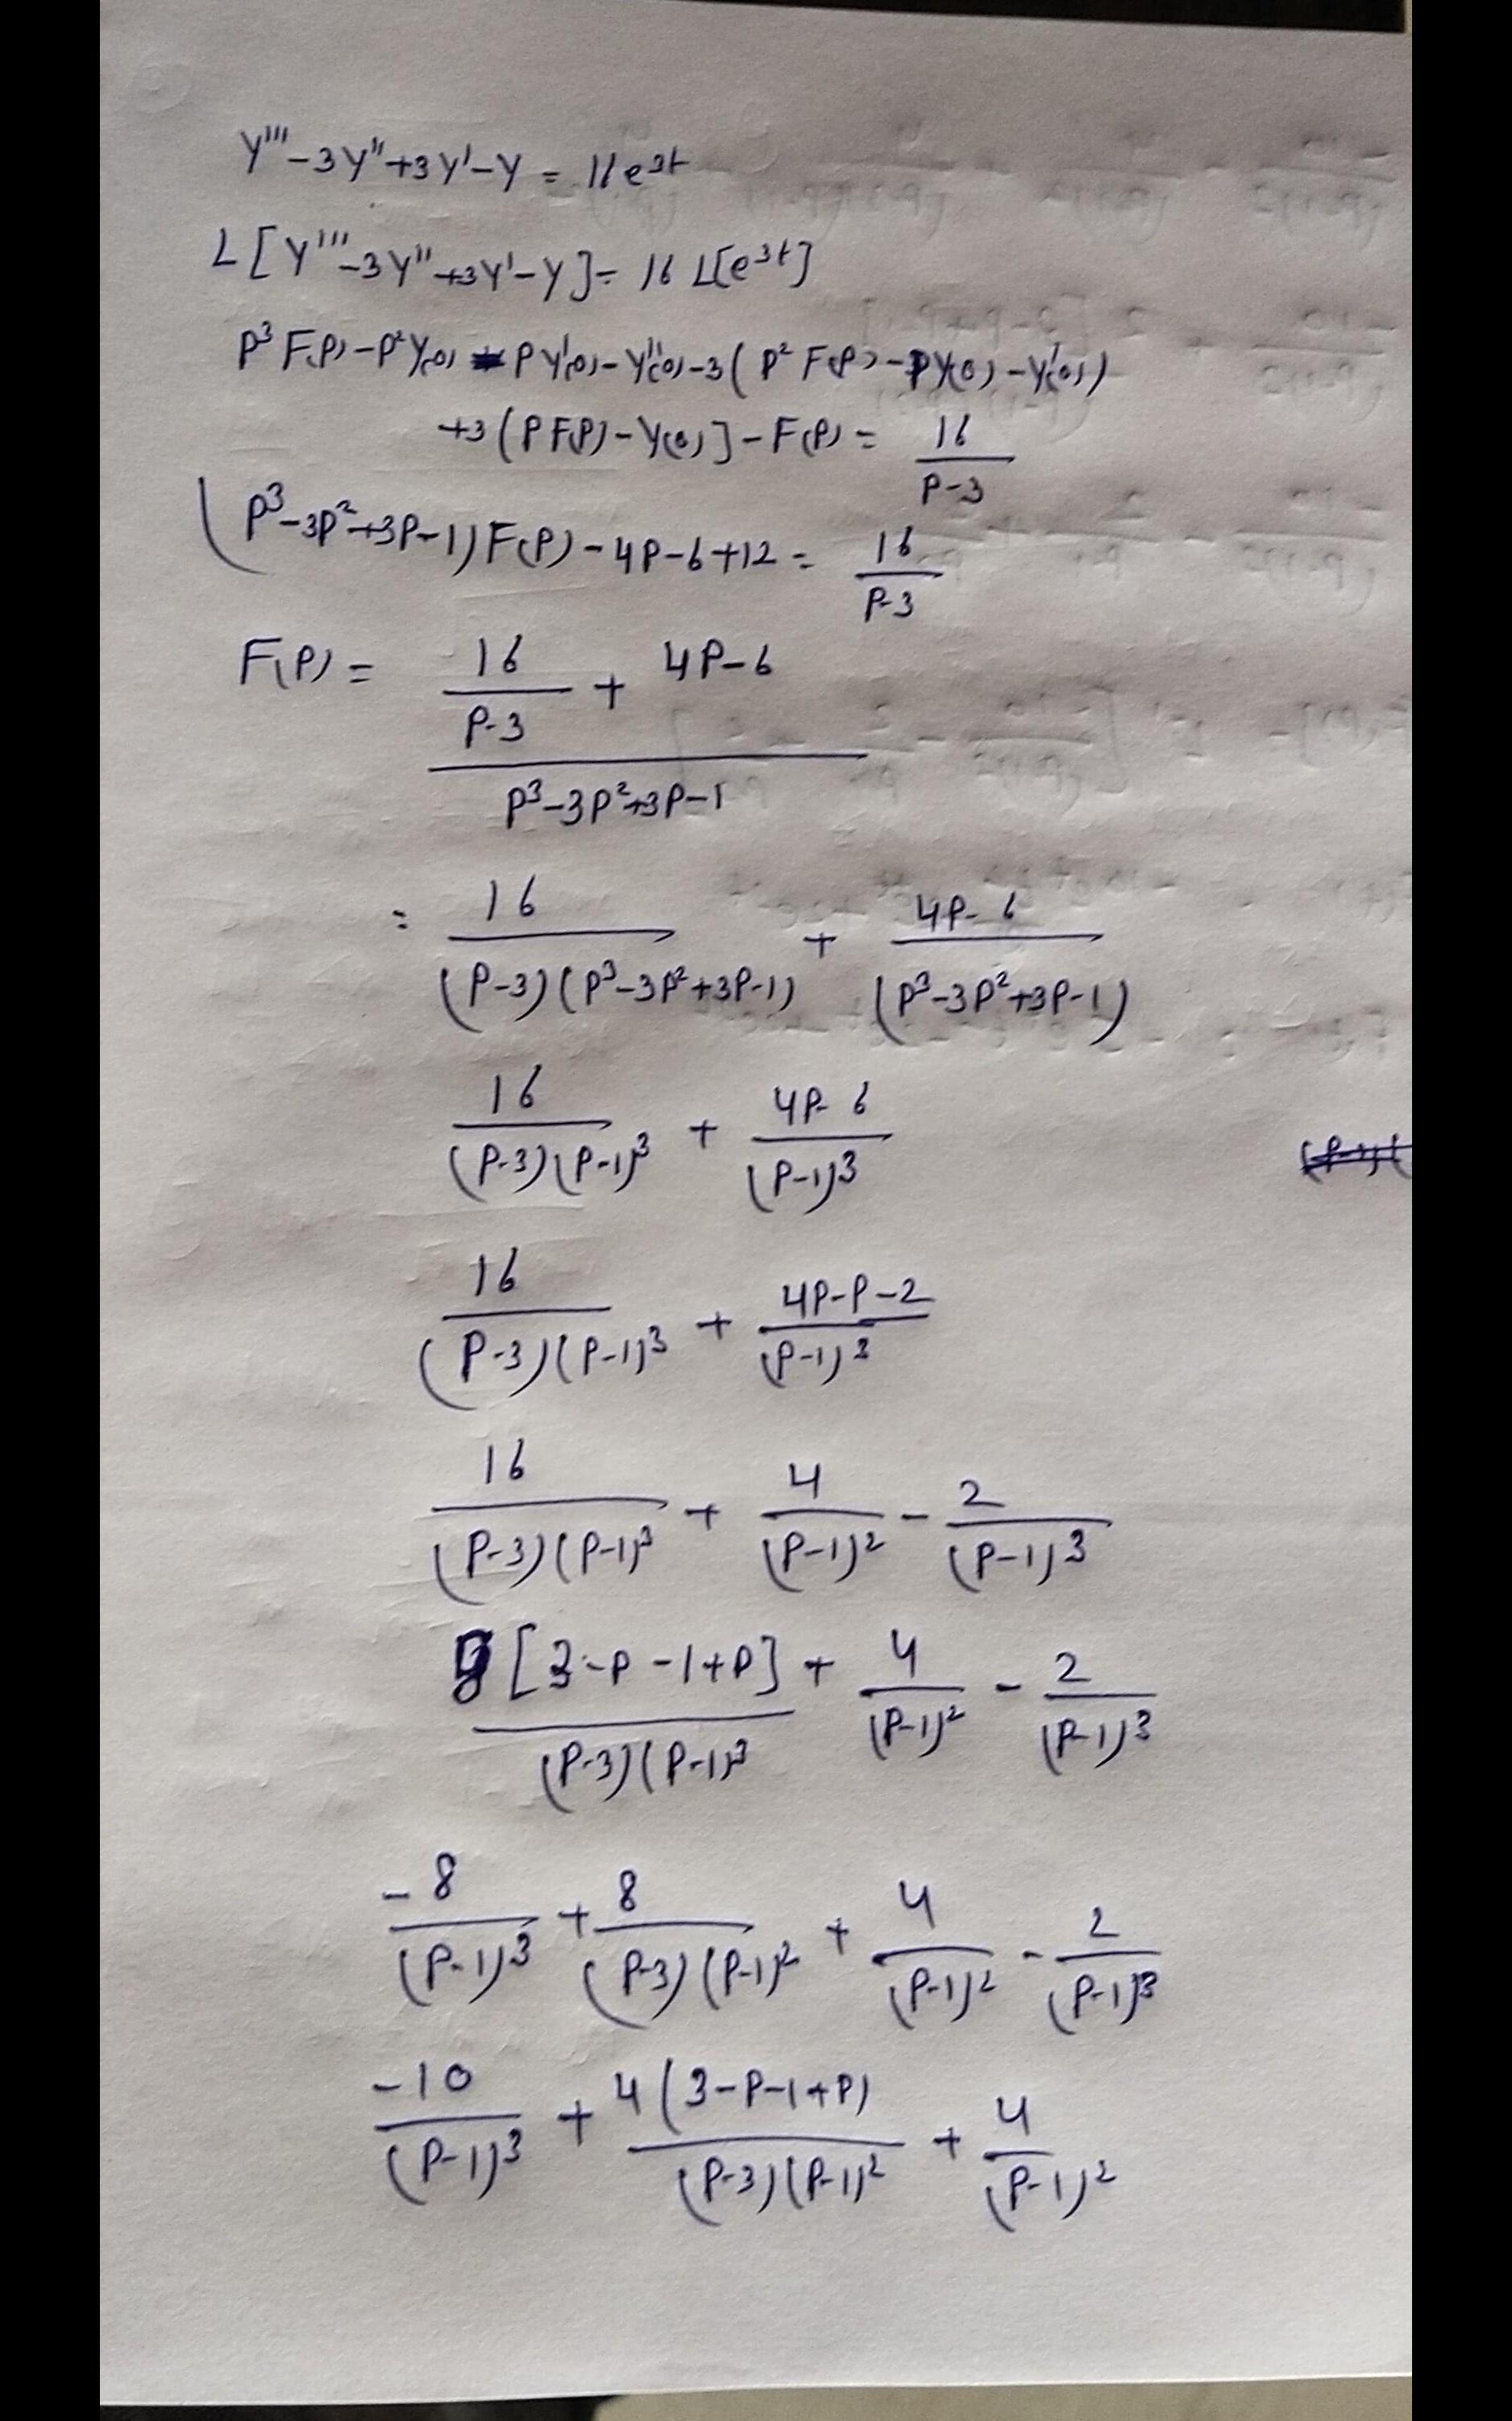 Y''' - 3Y'' + 3Y' - Y = 16e^3t
L[Y''' - 3Y'' + 3Y' - Y] = 16 L[e^3t]
P³F(P) - P²Y(0) - PY'(0) - Y''(0) - 3(P²F(P) - PY(0) - Y'(0))
+3(PF(P) - Y(0)] - F(P) = 16/(P-3)
(P³-3P²+3P-1)F(P) - 4P - 6 + 12 = 16/(P-3)
F(P) = (16/(P-3) + 4P-6)/(P³-3P²+3P-1)
= 16/((P-3)(P³-3P²+3P-1)) + (4P-6)/(P³-3P²+3P-1)
16/((P-3)(P-1)³) + (4P-6)/(P-1)³
16/((P-3)(P-1)³) + (4P-P-2)/(P-1)³
16/((P-3)(P-1)³) + 4/(P-1)² - 2/(P-1)³
8[3-P-1+P]/((P-3)(P-1)³) + 4/(P-1)² - 2/(P-1)³
-8/(P-1)³ + 8/((P-3)(P-1)²) + 4/(P-1)² - 2/(P-1)³
-10/(P-1)³ + 4(3-P-1+P)/((P-3)(P-1)²) + 4/(P-1)²